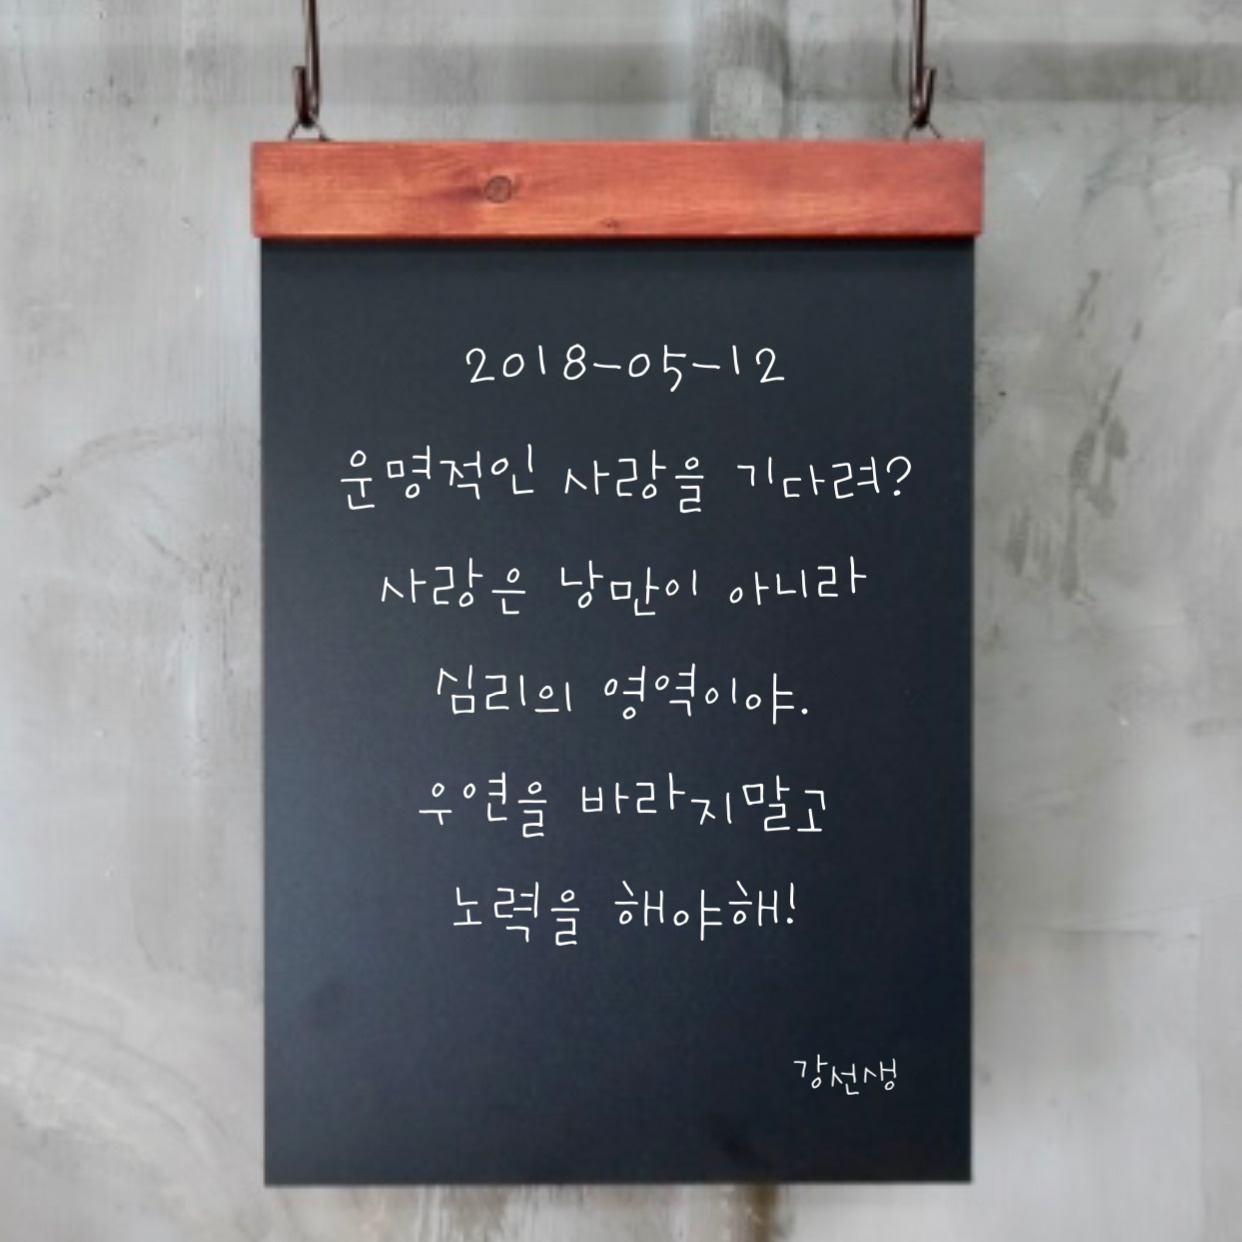 2018-05-12
운명적인 사랑을 기다려?
사랑은 낭만이 아니라
심리의 영역이야.
우연을 바라지말고
노력을 해야해!
강선생